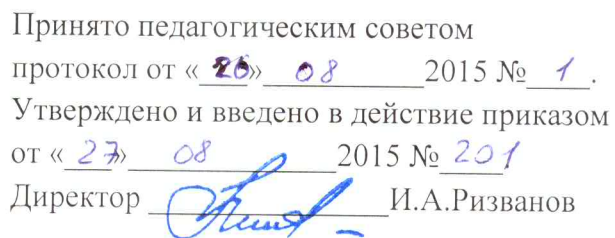 Принято педагогическим советом
протокол от «26» 08 2015 № 1.
Утверждено и введено в действие приказом
от «27» 08 2015 № 201
Директор И.А.Ризванов